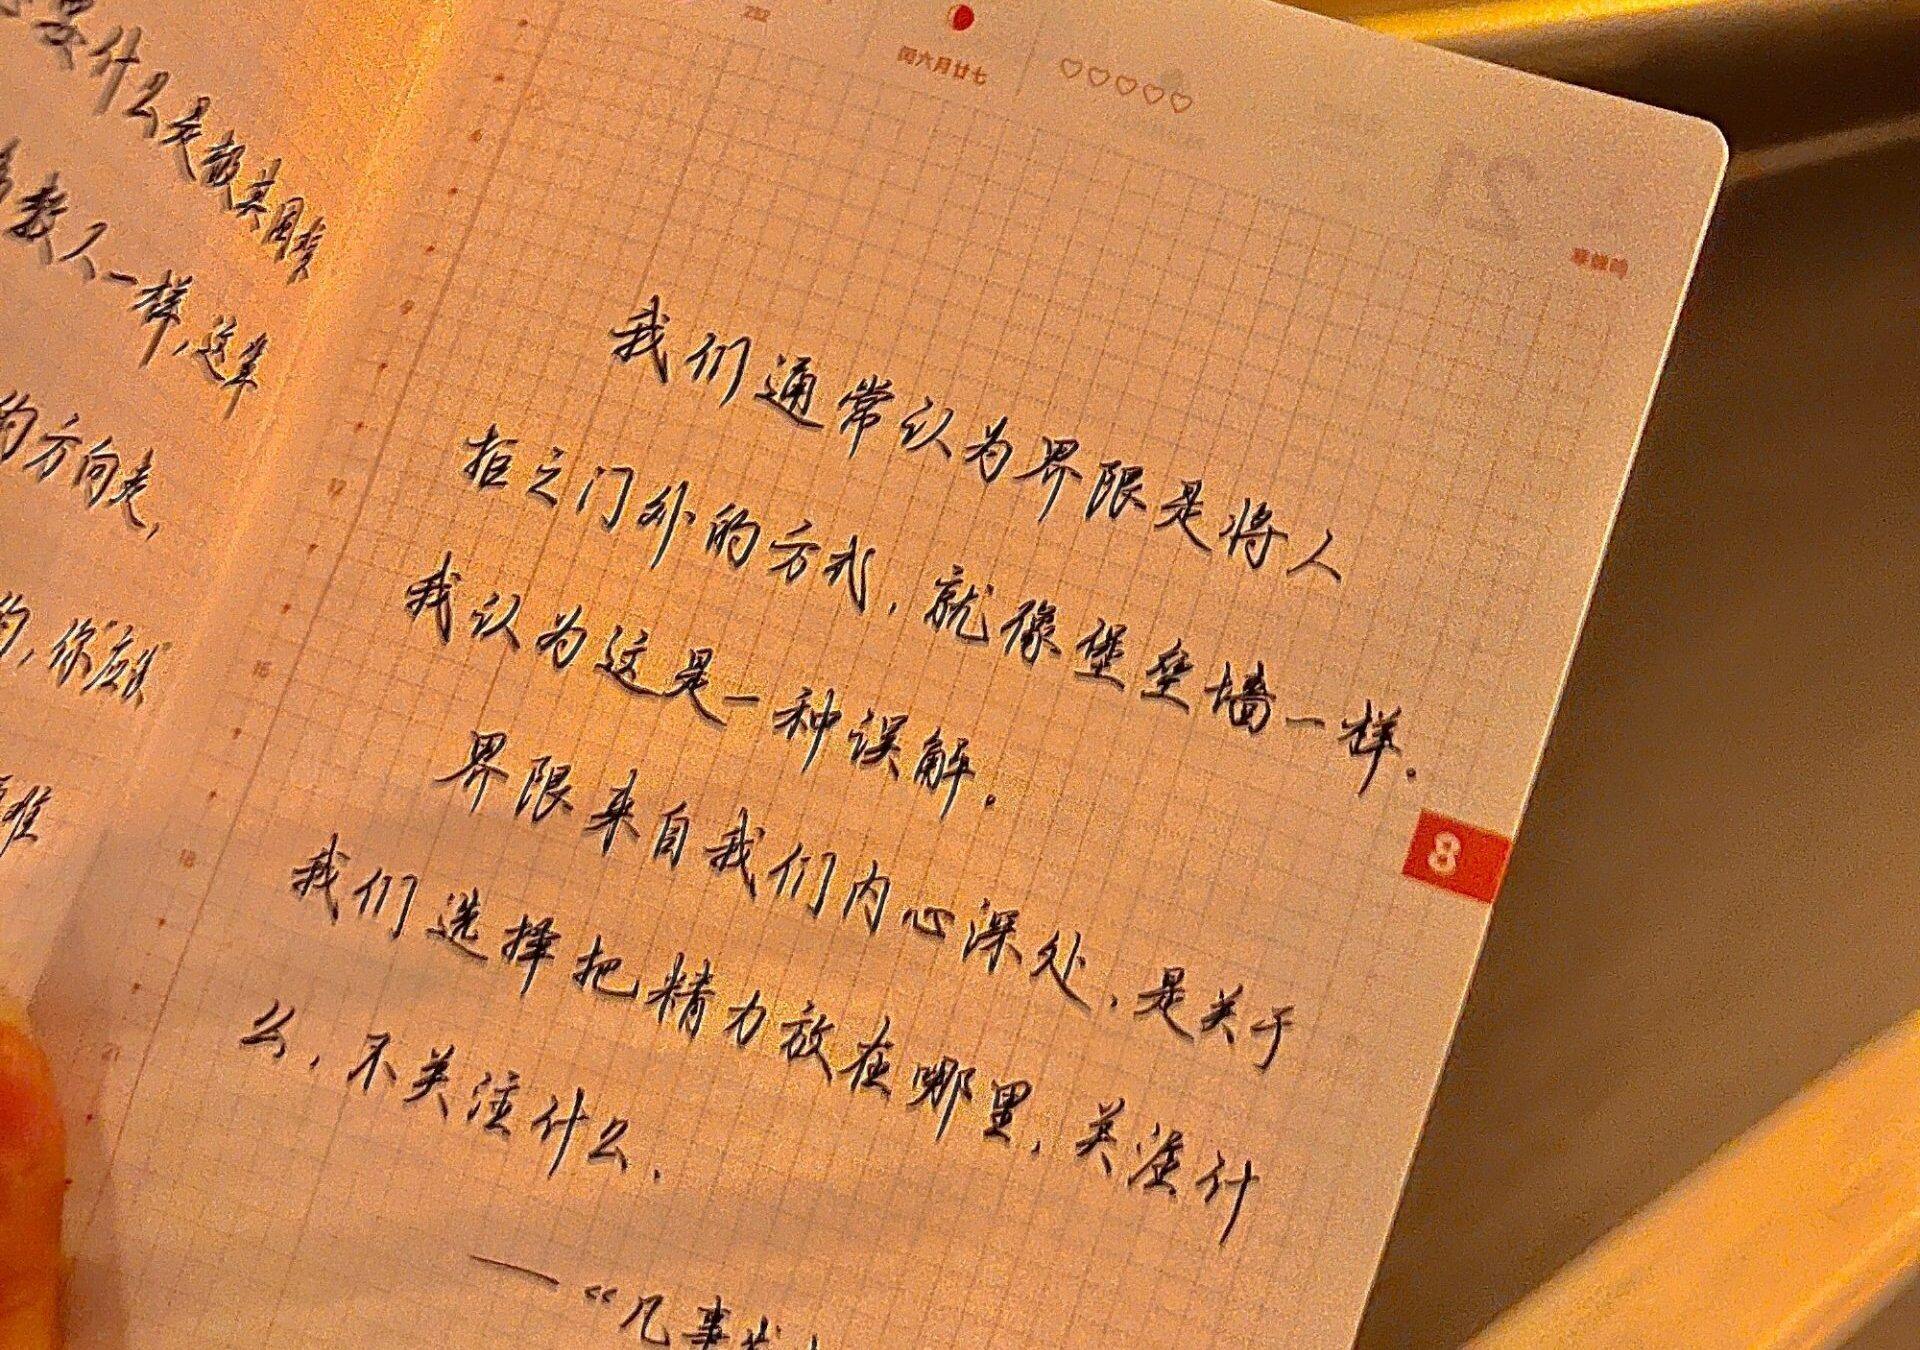 什么是极其困
数人一样，这
的方向走，
你应该
难
232
闰六月廿七
♡♡♡♡♡
我们通常认为界限是将人
拒之门外的方式，就像堡垒墙一样。
我认为这是一种误解。
界限来自我们内心深处，是关于
我们选择把精力放在哪里，关注什
么，不关注什么。
6
9
12
15
18
21
8
—《凡事